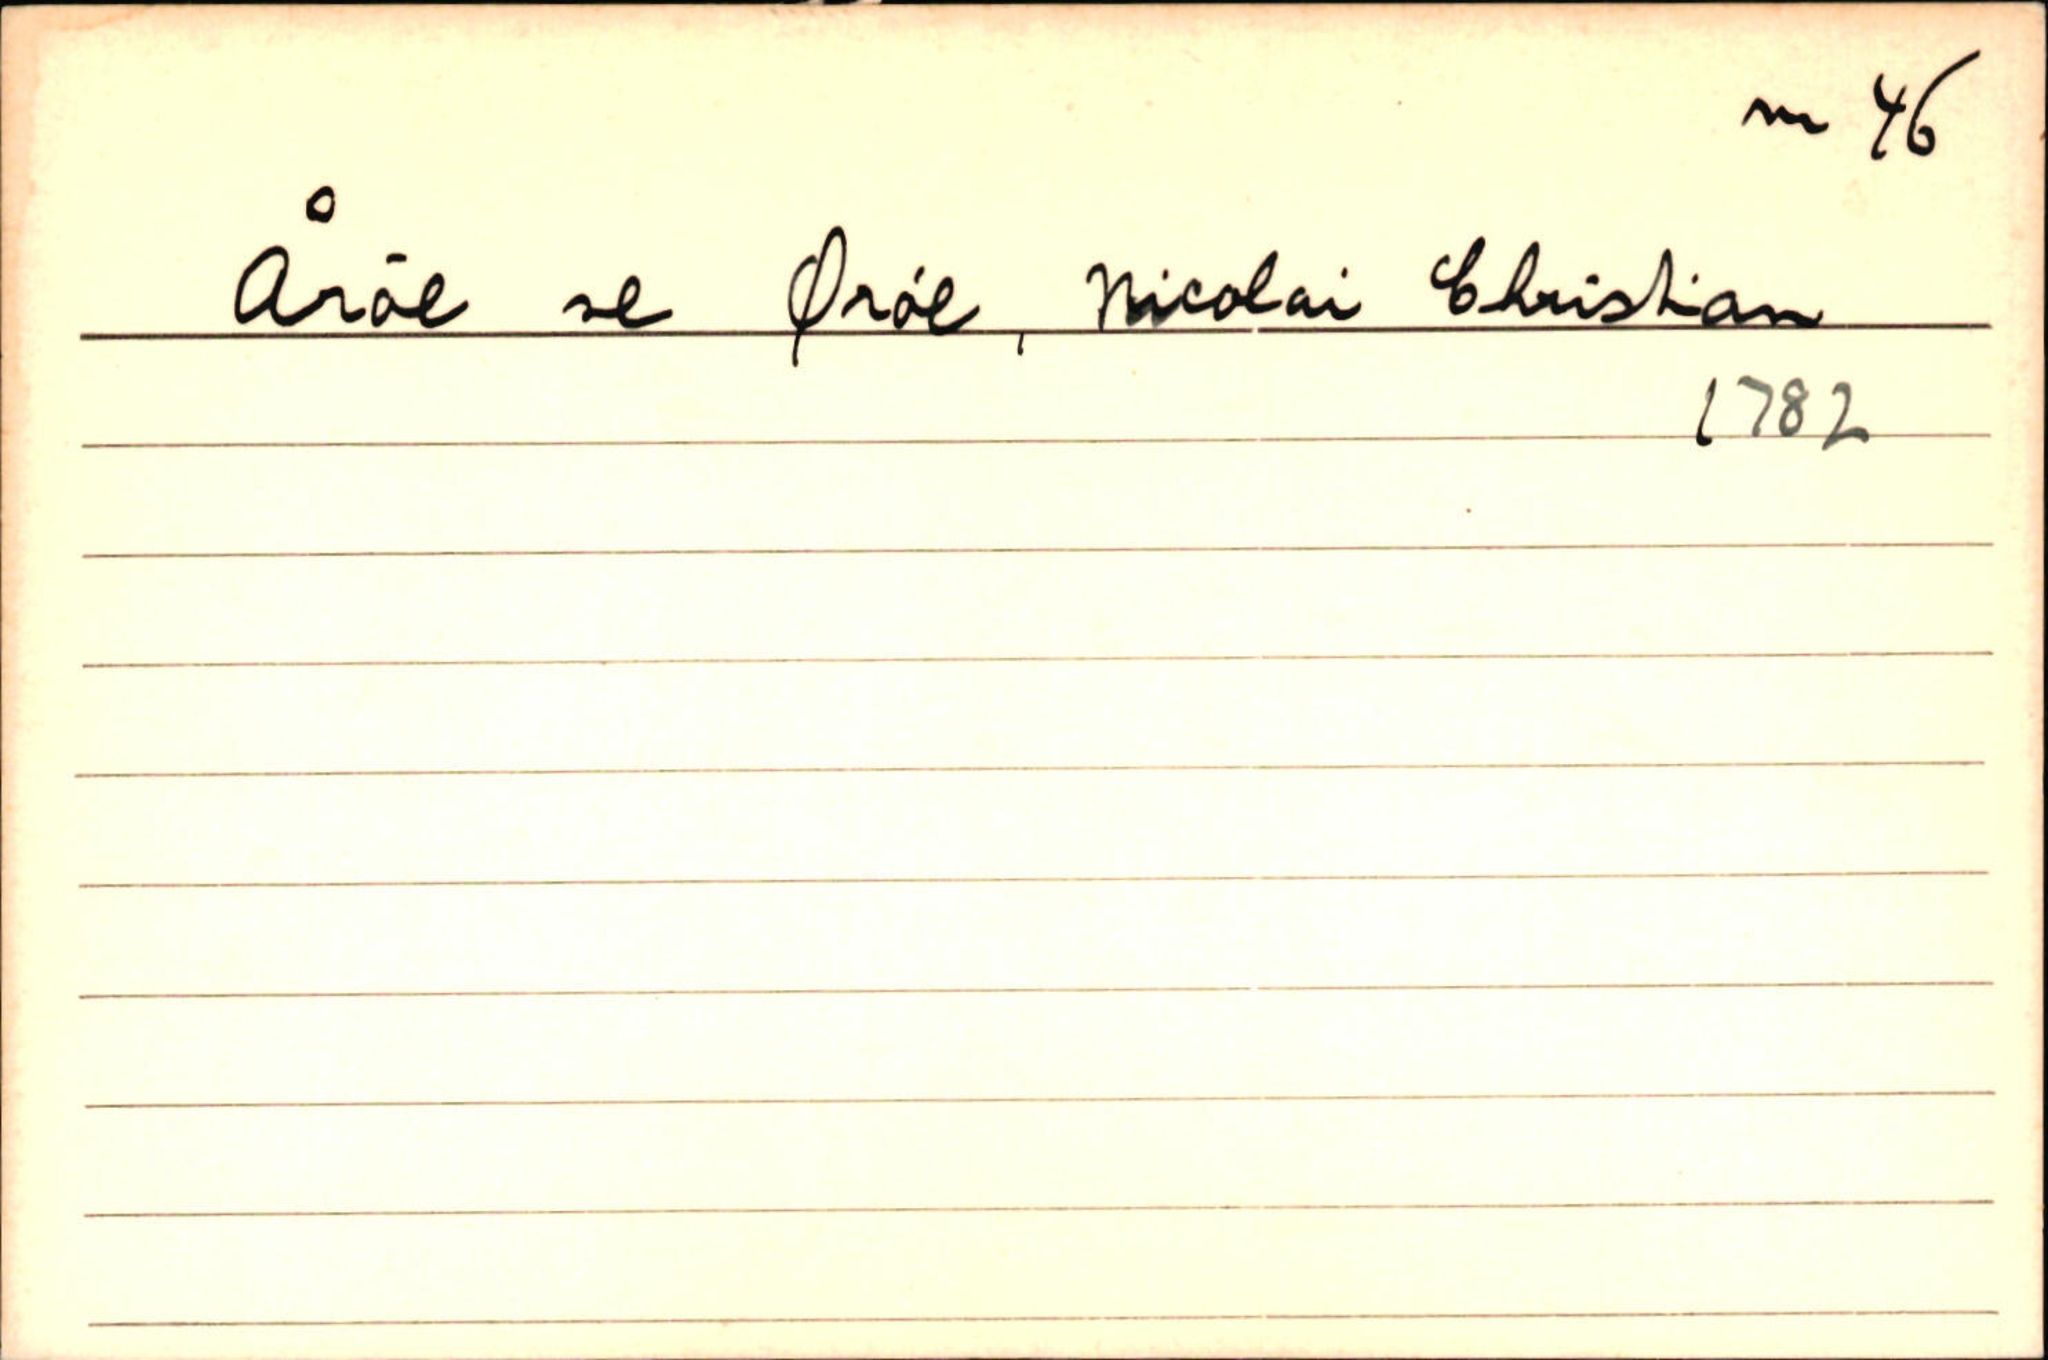 nr 46
Åröe se Øróe, Nicolai Christian
1782